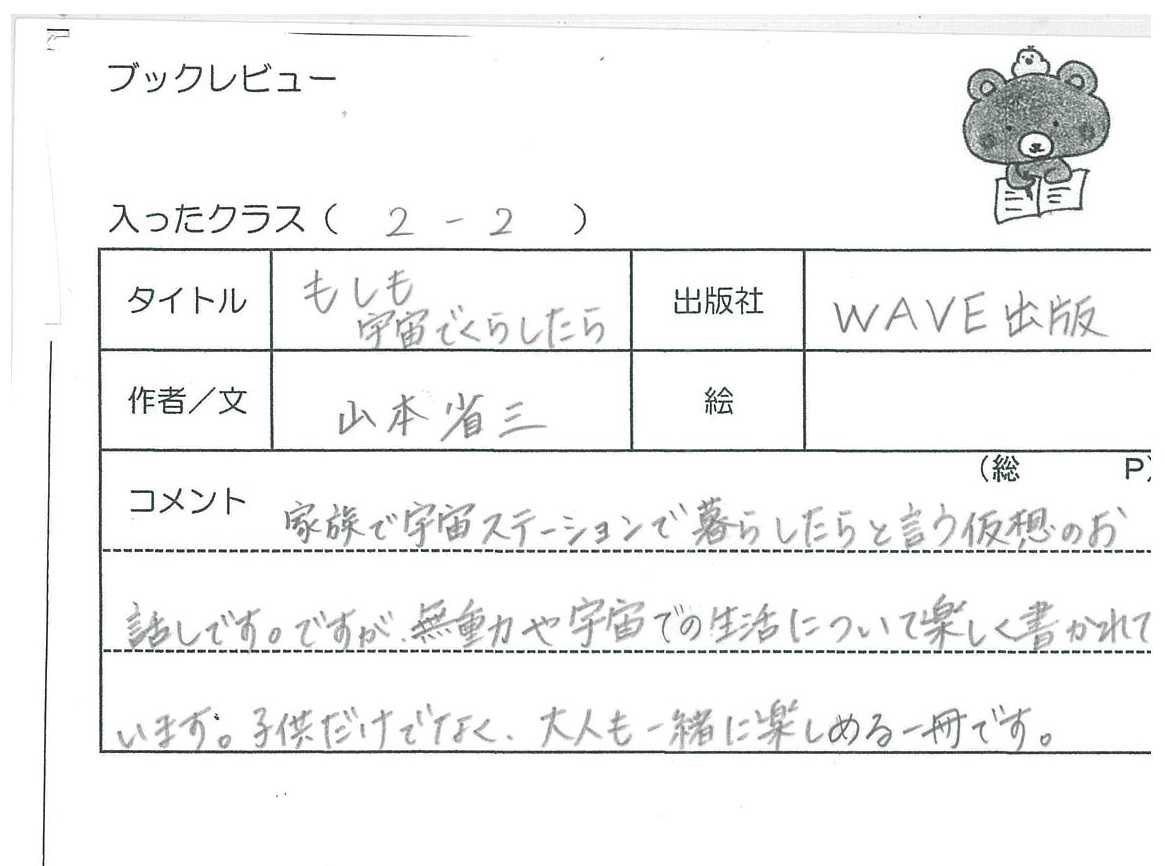 ブックレビュー
入ったクラス（ 2 - 2 ）
タイトル
もしも
宇宙でくらしたら
出版社
WAVE出版
作者／文
山本省三
絵
（総 P）
コメント
家族で宇宙ステーションで暮らしたらと言う仮想のお
話しです。ですが、無重力や宇宙での生活について楽しく書かれて
います。子供だけでなく、大人も一緒に楽しめる一冊です。